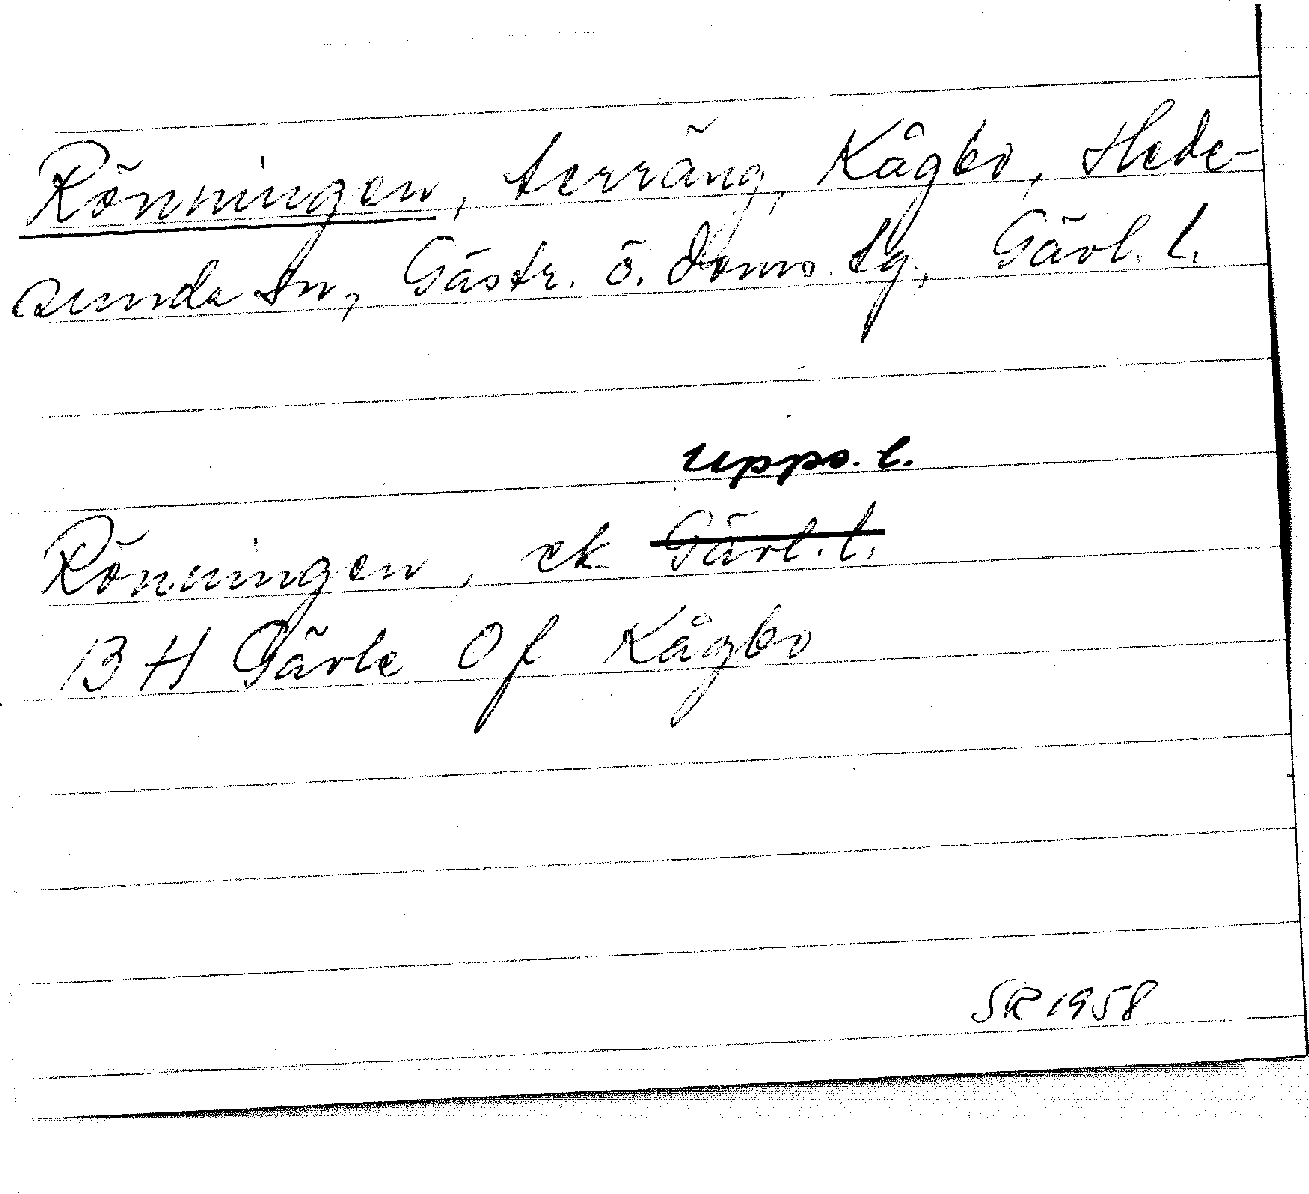 Rönningen, terräng, Kågbo, Hede-
sunda sn, Gästr. ö. doms. tg, Gävl. l.
Upps. l.
Rönningen, ek Gävl. l.
13 H Gävle Of Kågbo
SR 1958